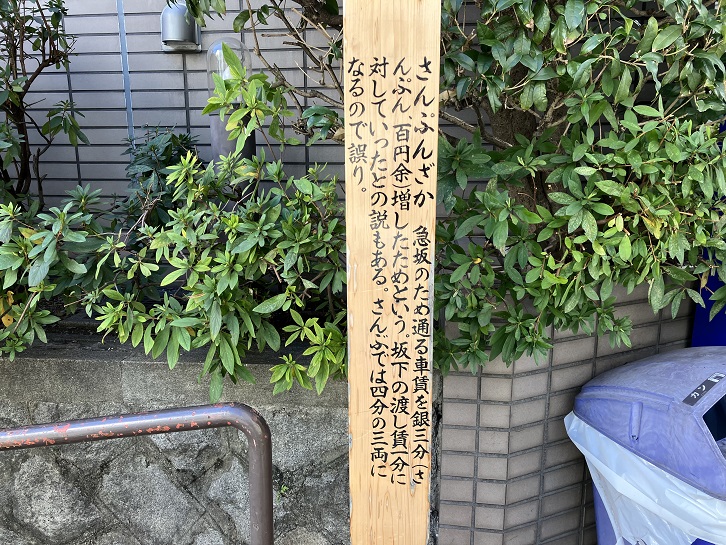 さんぷんざか 急坂のため通る車賃を銀三分(さ
んぷん 百円余)増したためという。坂下の渡し賃一分に
対していったとの説もある。さんぶでは四分の三両に
なるので誤り。
カン